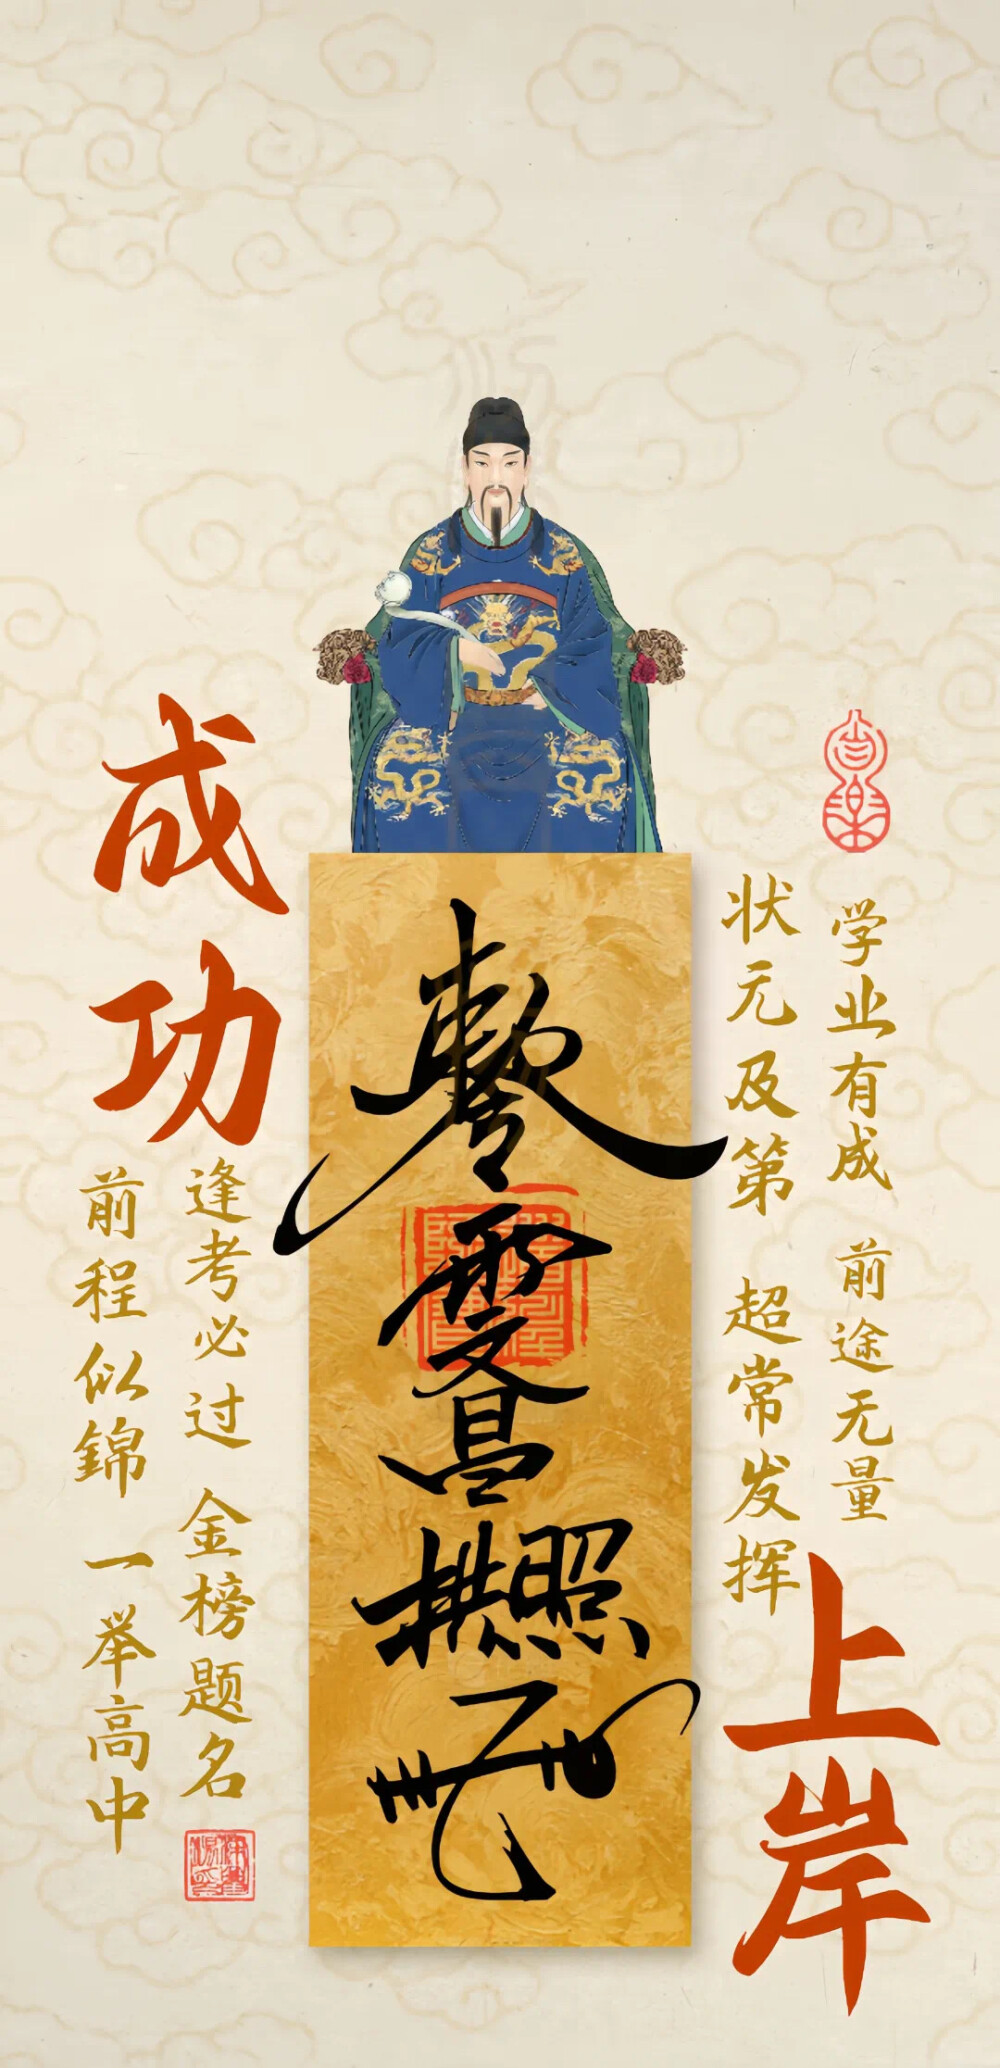 成功
上岸
学业有成 前途无量
状元及第 超常发挥
敕令
文昌拱照
逢考必过 金榜题名
前程似錦 一举高中